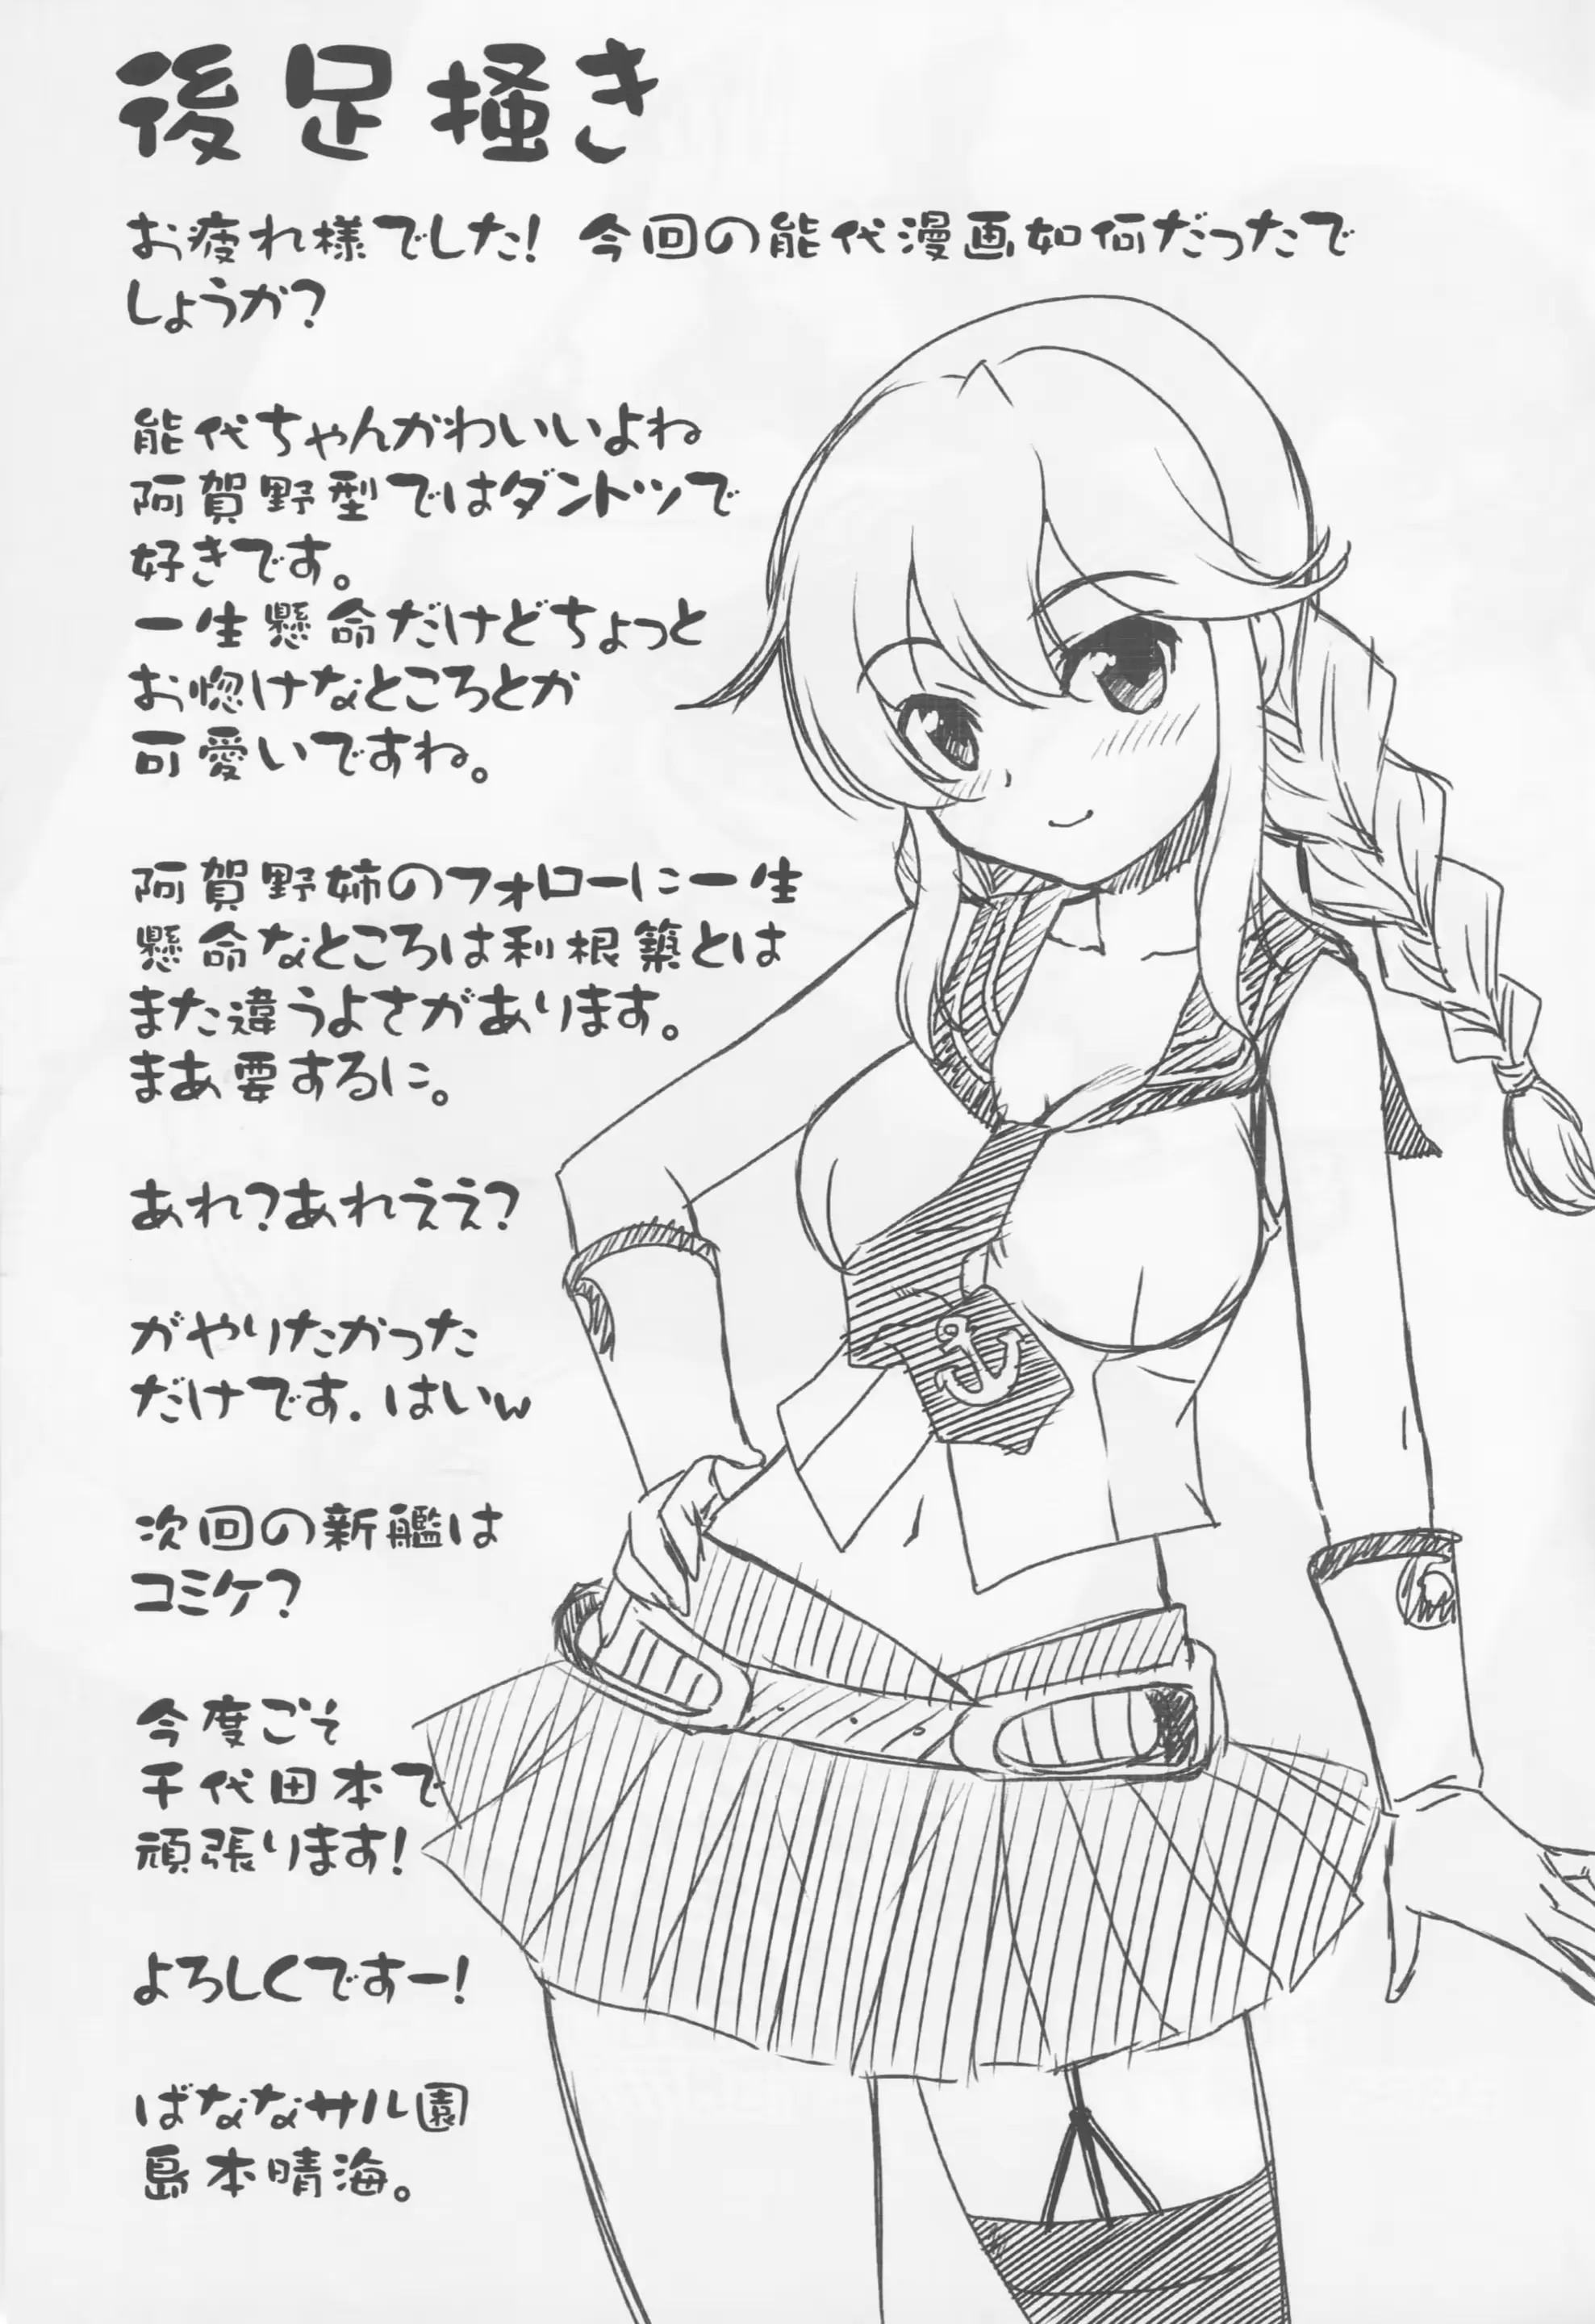 後足掻き
お疲れ様でした! 今回の能代漫画如何だったで
しょうか?
能代ちゃんかわいいよね
阿賀野型ではダントツで
好きです。
一生懸命だけどちょっと
お惚けなところとか
可愛いですね。
阿賀野姉のフォローに一生
懸命なところは利根築とは
また違うよさがあります。
まあ要するに。
あれ?あれええ?
がやりたかった
だけです. はいw
次回の新艦は
コミケ?
今度こそ
千代田本で
頑張ります!
よろしくですー!
ばななサル園
島本晴海。